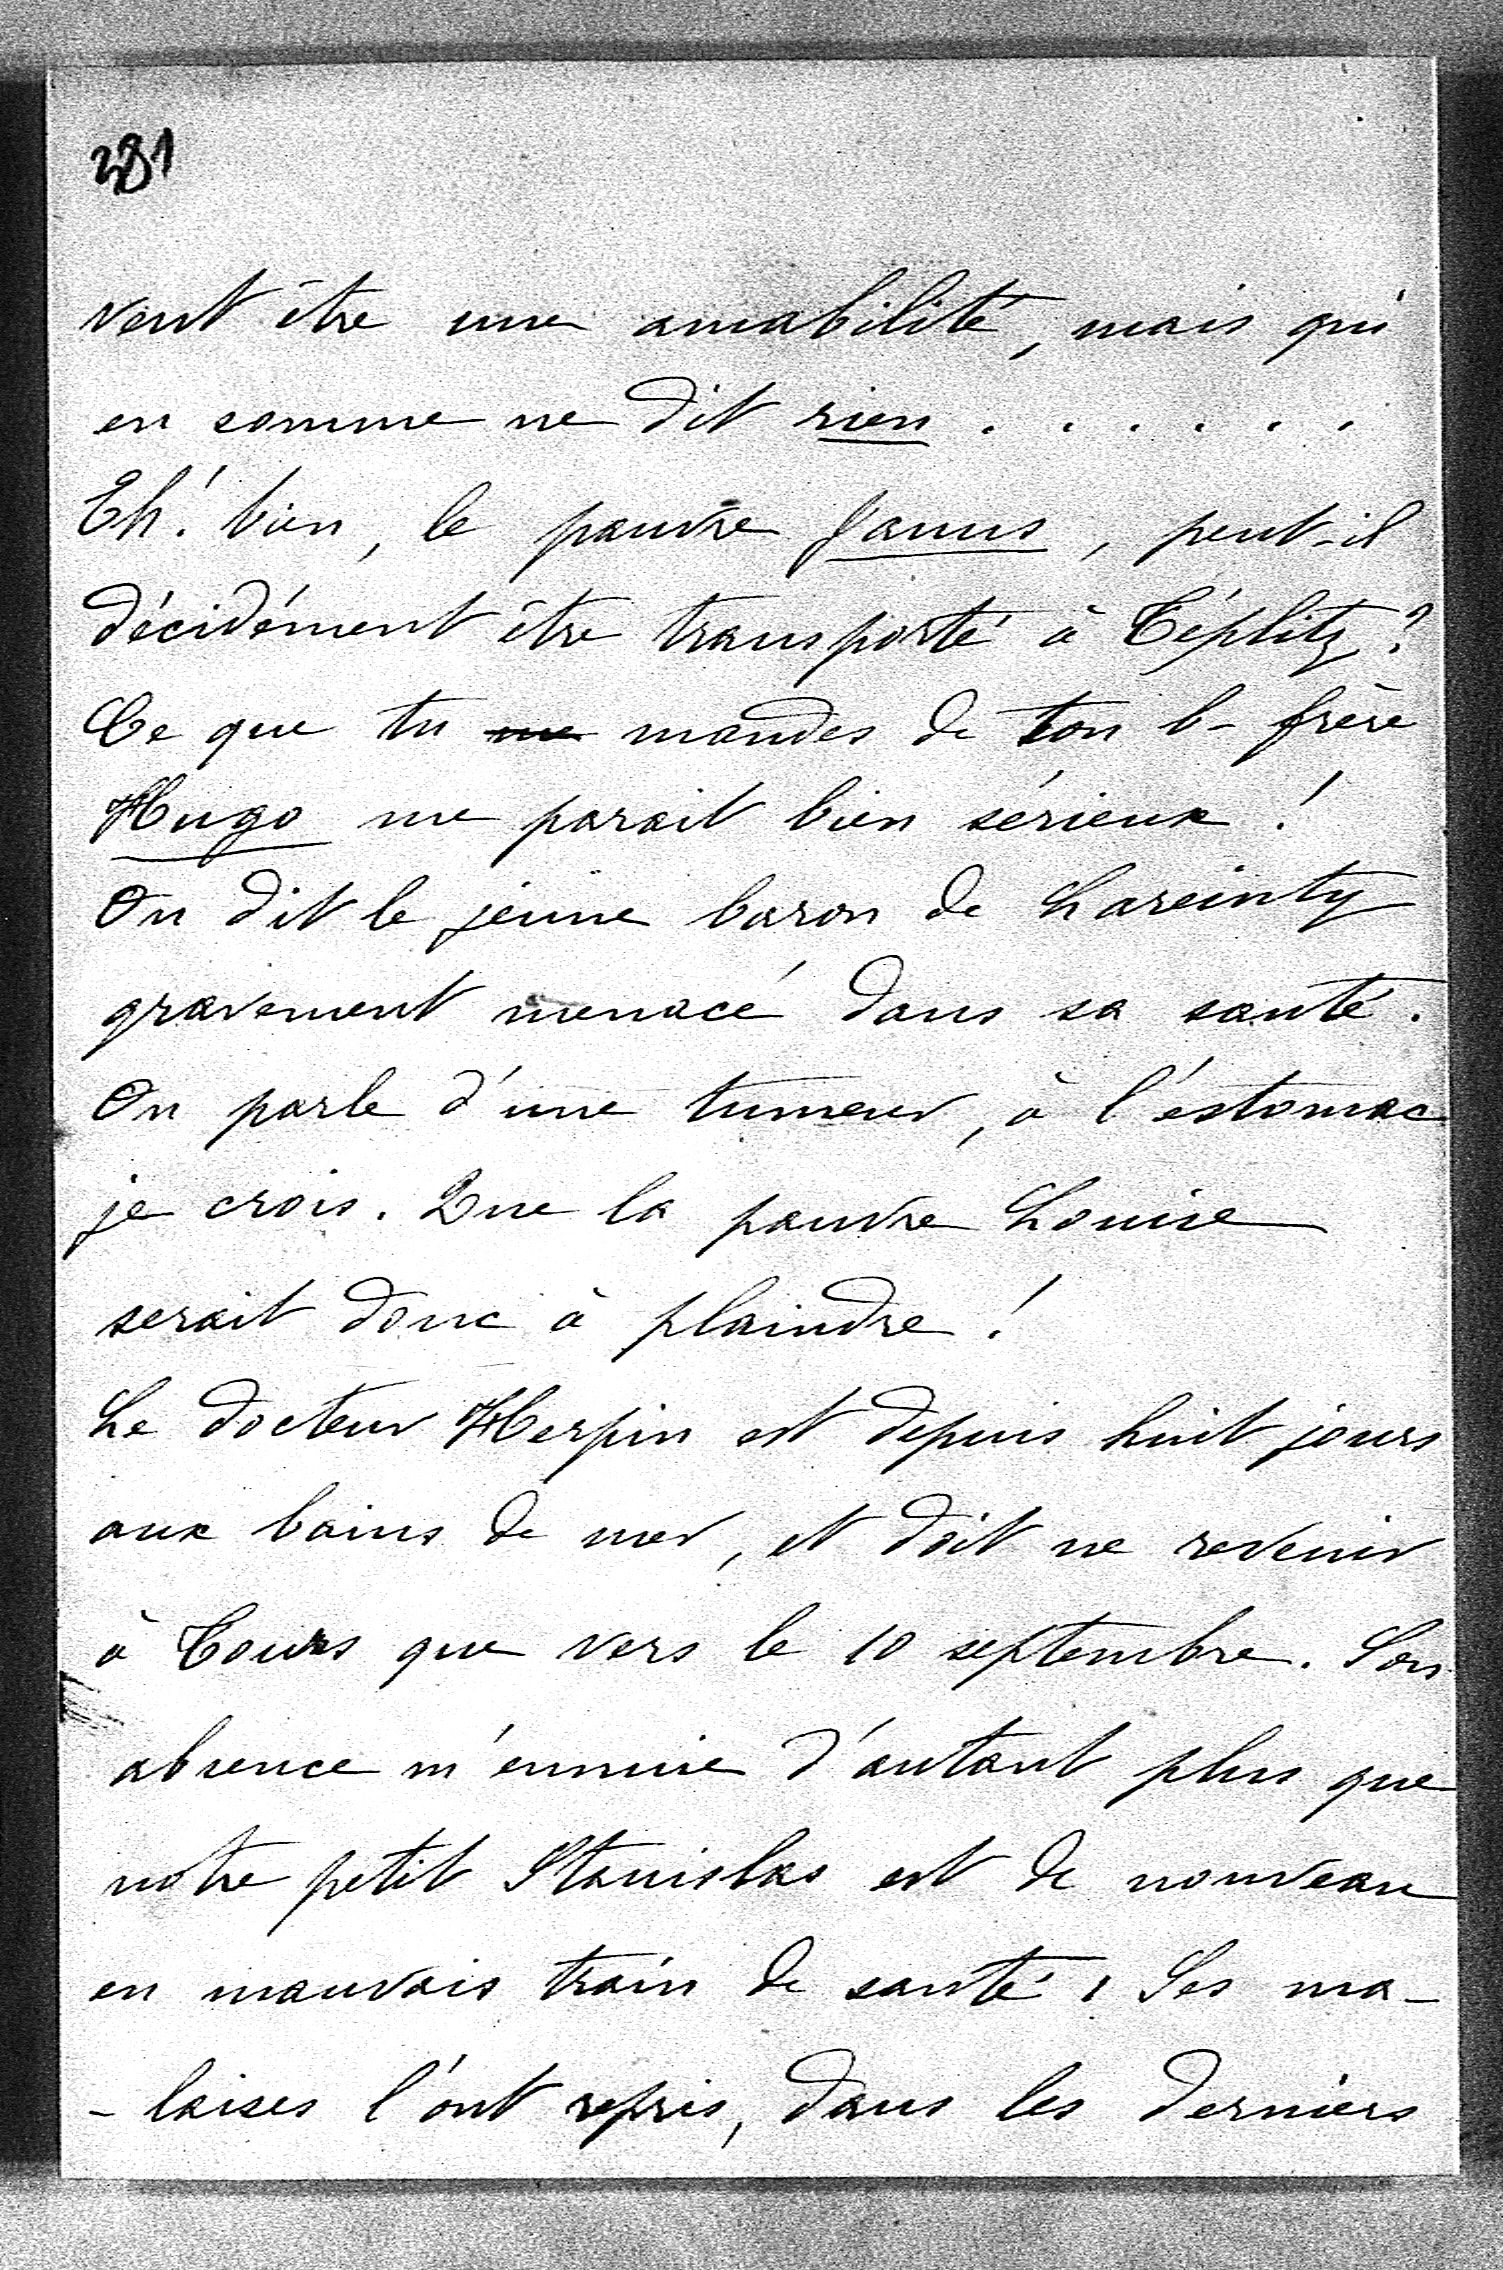 281
veut être une amabilité, mais qui
en somme ne dit rien . . . . . .
Eh! bien, le pauvre Janus, peut-il
décidément être transporté à Téplitz?
Ce que tu me mandes de ton b- frère
Hugo me parait bien sérieux!
On dit le jeune baron de Lareinty
gravement menacé dans sa santé.
On parle d'une tumeur, à l'estomac
je crois. Que la pauvre Louise
serait donc à plaindre!
Le docteur Herpin est depuis huit jours
aux bains de mer, et doit ne revenir
à Tours que vers le 10 septembre. Son
absence m'ennuie d'autant plus que
notre petit Stanislas est de nouveau
en mauvais train de santé! Ses ma-
- laises l'ont repris, dans les derniers